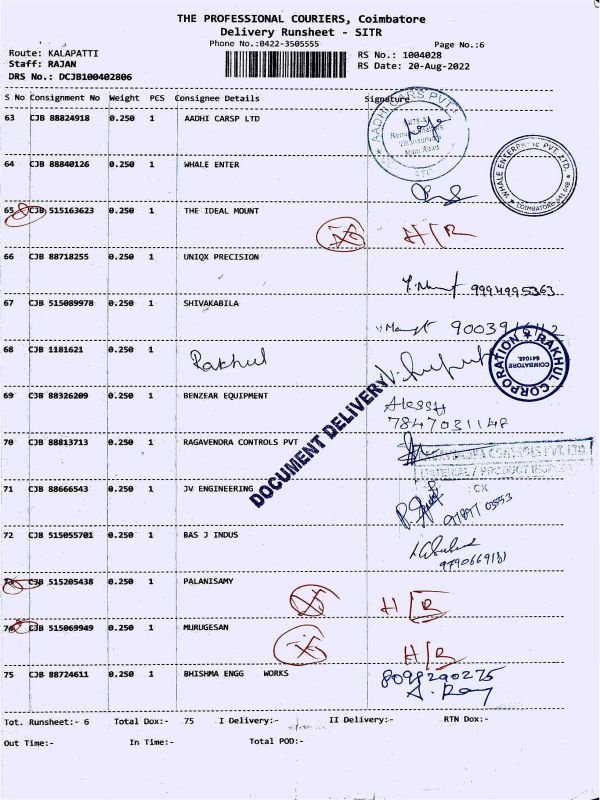 THE PROFESSIONAL COURIERS, Coimbatore
Delivery Runsheet - SITR
Phone No.:0422-3505555 Page No.:6
Route: KALAPATTI RS No.: 1004028
Staff: RAJAN RS Date: 20-Aug-2022
DRS No.: DCJB100402806
S No Consignment No Weight PCS Consignee Details Signature
63 CJB 88824918 0.250 1 AADHI CARSP LTD
AADHI CARS PVT
64 CJB 88840126 0.250 1 WHALE ENTER
WHALE ENTERPRISE PVT. LTD. COIMBATORE
65 CJB 515163623 0.250 1 THE IDEAL MOUNT H/R
66 CJB 88718255 0.250 1 UNIQX PRECISION 9994995363
67 CJB 515089978 0.250 1 SHIVAKABILA
68 CJB 1181621 1 Rakhul
RAKHUL CORPORATION COIMBATORE 641048.
69 CJB 88326209 0.250 1 BENZEAR EQUIPMENT
7847031148
DOCUMENT DELIVERY
70 CJB 88813713 0.250 1 RAGAVENDRA CONTROLS PVT
CONTROLS PVT LTD
71 CJB 88666543 0.250 1 JV ENGINEERING
72 CJB 515055701 0.250 1 BAS J INDUS
9790669181
73 CJB 515205438 0.250 1 PALANISAMY H/R
74 CJB 515069949 0.250 1 MURUGESAN H/R
75 CJB 88724611 0.250 1 BHISHMA ENGG WORKS 8098290275
Tot. Runsheet:- 6 Total Dox:- 75 I Delivery:- II Delivery:- RTN Dox:-
Out Time:- In Time:- Total POD:-